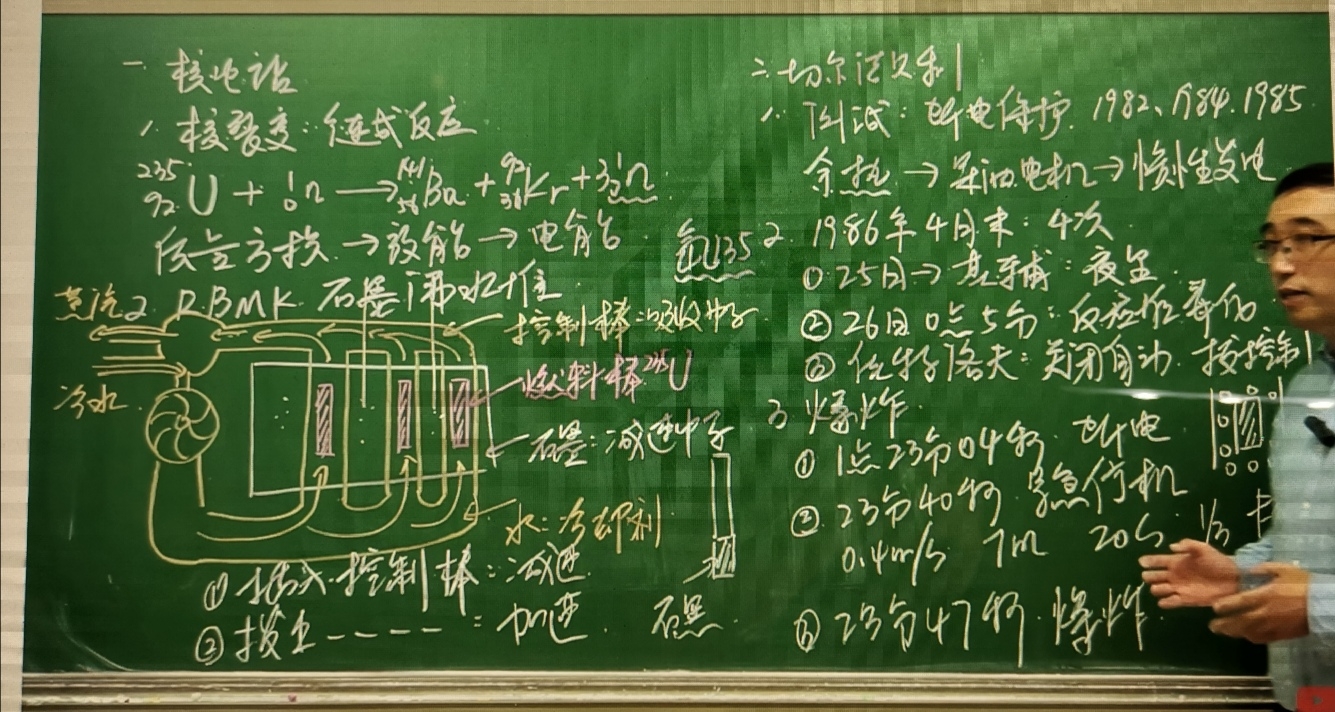 一 核电站
1. 核裂变：链式反应
²³⁵₉₂U + ¹₀n → ¹⁴¹₅₆Ba + ⁹²₃₆Kr + 3¹₀n
质量亏损 → 致能 → 电能 氙135
2. RBMK 石墨沸水堆
蒸汽
冷水
控制棒：吸收中子
燃料棒 ²³⁵U
石墨：减速中子
水：冷却剂
① 插入控制棒：减速
② 拔出 ---- ：加速
石墨
二 切尔诺贝利
1. 测试：断电保护 1982、1984、1985
余热 → 柴油电机 → 惯性发电
2. 1986年4月末：4次
① 25日 → 基辅：夜里
② 26日0点5分：反应
③ 托洛夫：关闭自动 拔控制
3 爆炸
① 1点23分04秒 断电
② 23分40秒 紧急停机
0.4m/s 7m 20s 1/3 卡
③ 23分47秒 爆炸